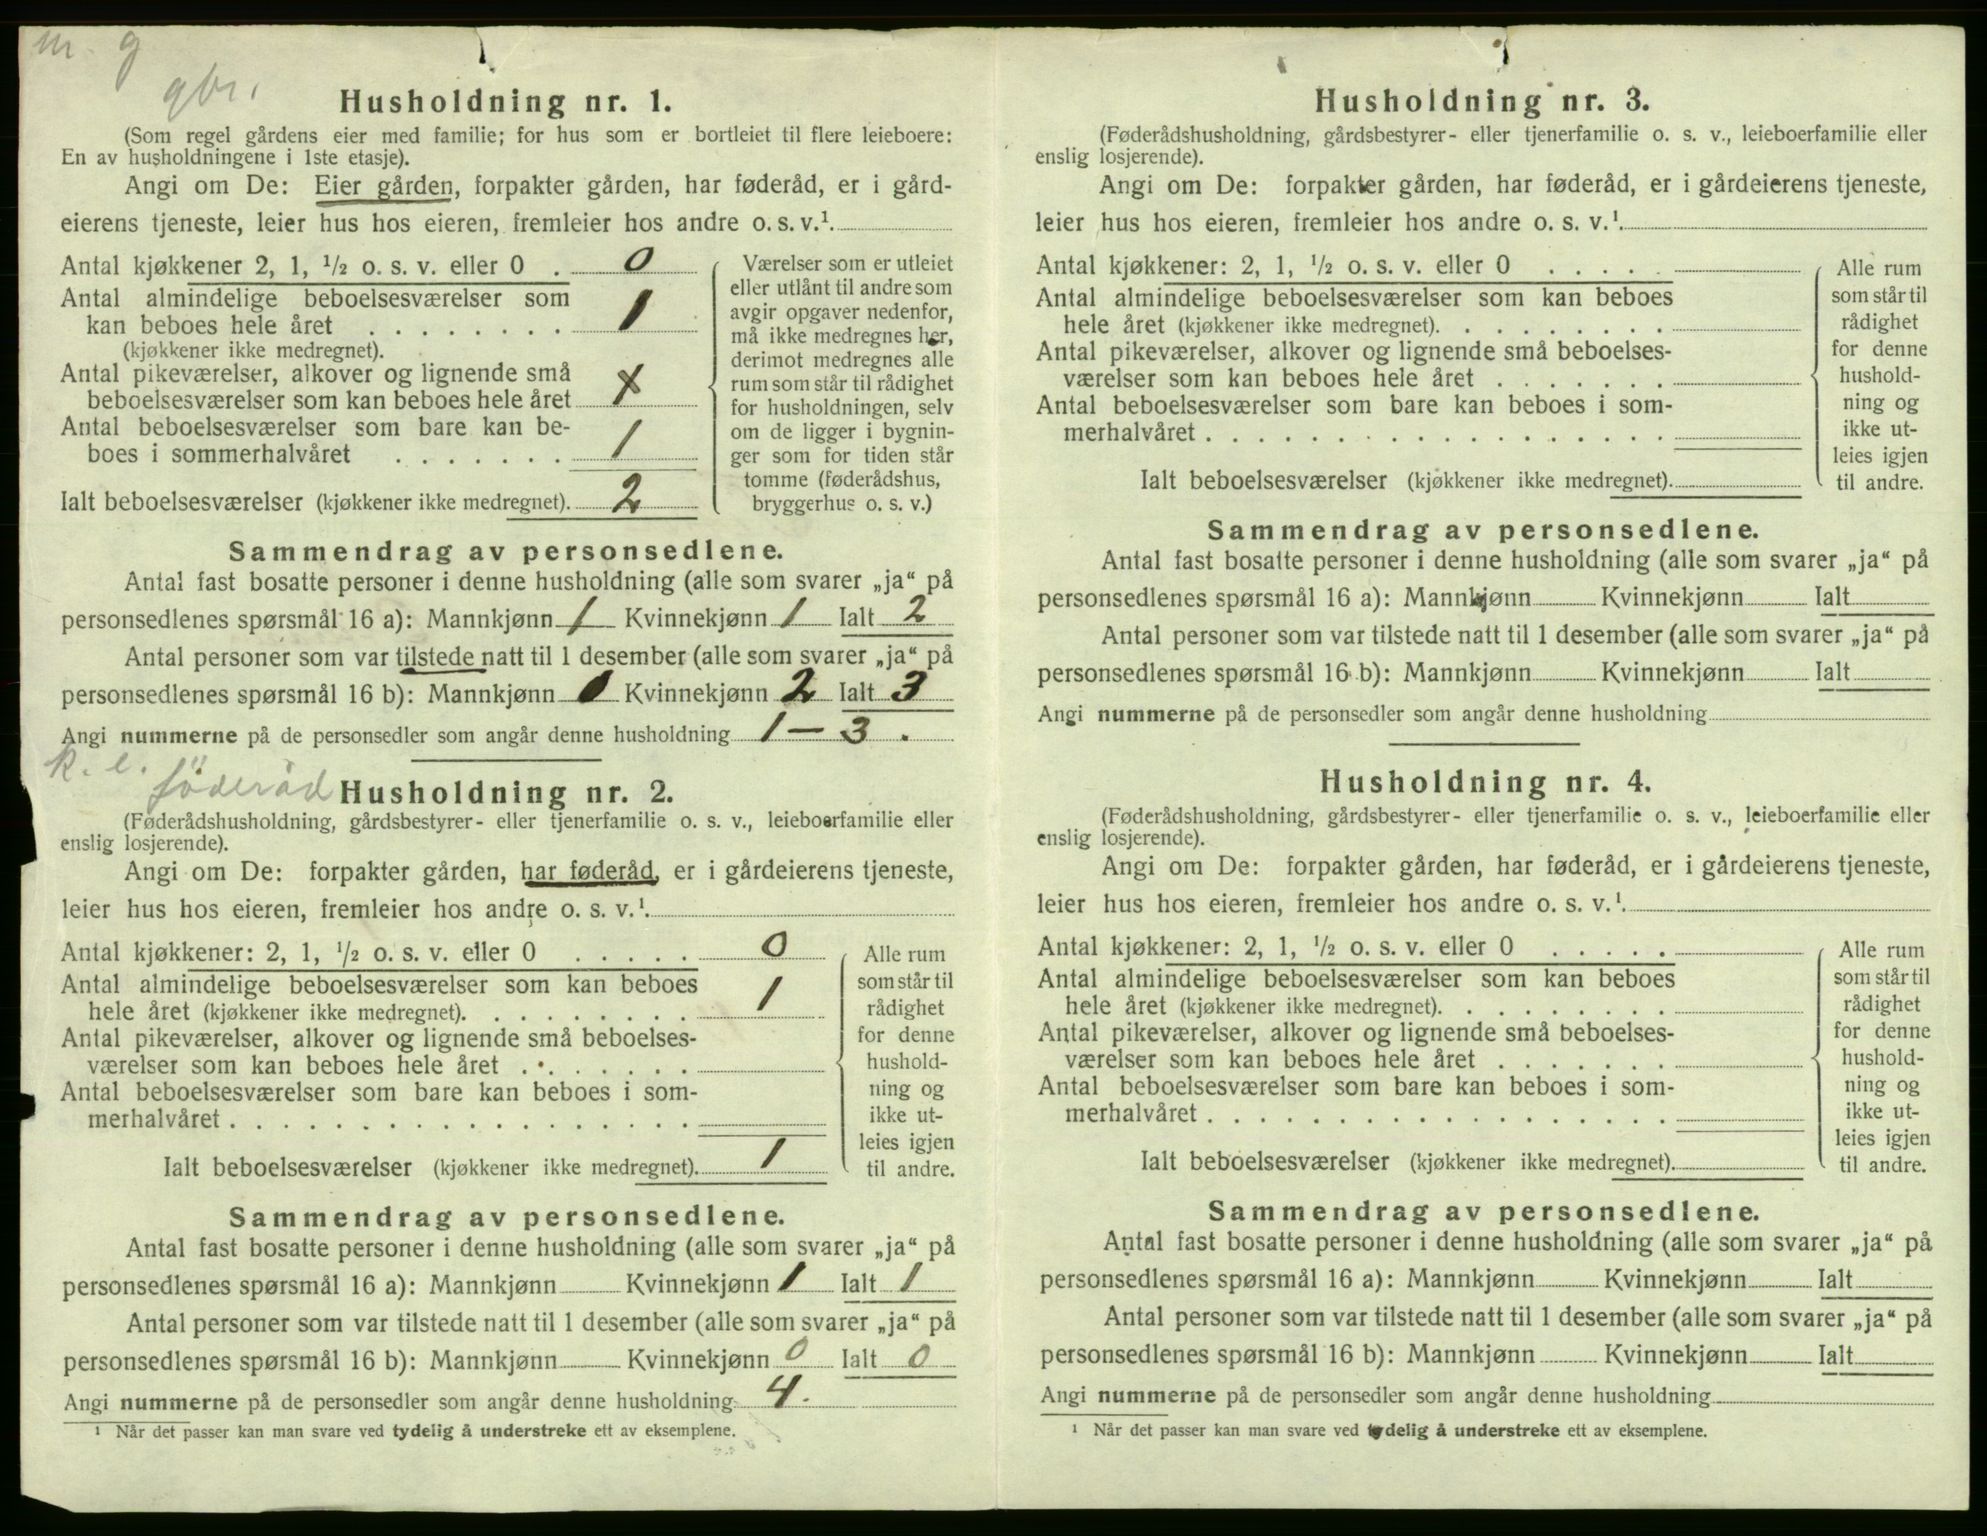 m. g
gbr.
Husholdning nr. 1.
(Som regel gårdens eier med familie; for hus som er bortleiet til flere leieboere:
En av husholdningene i 1ste etasje).
Angi om De: Eier gården, forpakter gården, har føderåd, er i gård-
eierens tjeneste, leier hus hos eieren, fremleier hos andre o. s. v.¹
Antal kjøkkener 2, 1, ½ o. s. v. eller 0 . 0
Antal almindelige beboelsesværelser som
kan beboes hele året . . . . . . . . 1
(kjøkkener ikke medregnet).
Antal pikeværelser, alkover og lignende små
beboelsesværelser som kan beboes hele året x
Antal beboelsesværelser som bare kan be-
boes i sommerhalvåret . . . . . . . 1
Ialt beboelsesværelser (kjøkkener ikke medregnet). 2
Værelser som er utleiet
eller utlånt til andre som
avgir opgaver nedenfor,
må ikke medregnes her,
derimot medregnes alle
rum som står til rådighet
for husholdningen, selv
om de ligger i bygnin-
ger som for tiden står
tomme (føderådshus,
bryggerhus o. s. v.)
Sammendrag av personsedlene.
Antal fast bosatte personer i denne husholdning (alle som svarer „ja“ på
personsedlenes spørsmål 16 a): Mannkjønn 1 Kvinnekjønn 1 Ialt 2
Antal personer som var tilstede natt til 1 desember (alle som svarer „ja“ på
personsedlenes spørsmål 16 b): Mannkjønn Kvinnekjønn 2 Ialt 3
Angi nummerne på de personsedler som angår denne husholdning 1 — 3 .
k. e. föderåd
Husholdning nr. 2.
(Føderådshusholdning, gårdsbestyrer- eller tjenerfamilie o. s. v., leieboerfamilie eller
enslig losjerende).
Angi om De: forpakter gården, har føderåd, er i gårdeierens tjeneste,
leier hus hos eieren, fremleier hos andre o. s. v.¹
Antal kjøkkener: 2, 1, ½ o. s. v. eller 0 . . . . . 0
Antal almindelige beboelsesværelser som kan beboes
hele året (kjøkkener ikke medregnet). . . . . . . . . 1
Antal pikeværelser, alkover og lignende små beboelses-
værelser som kan beboes hele året . . . . . . .
Antal beboelsesværelser som bare kan beboes i som-
merhalvåret . . . . . . . . . . . . . . . . . .
Ialt beboelsesværelser (kjøkkener ikke medregnet). 1
Alle rum
som står til
rådighet
for denne
hushold-
ning og
ikke ut-
leies igjen
til andre.
Sammendrag av personsedlene.
Antal fast bosatte personer i denne husholdning (alle som svarer „ja“ på
personsedlenes spørsmål 16 a): Mannkjønn Kvinnekjønn 1 Ialt 1
Antal personer som var tilstede natt til 1 desember (alle som svarer „ja“ på
personsedlenes spørsmål 16 b): Mannkjønn Kvinnekjønn 0 Ialt 0
Angi nummerne på de personsedler som angår denne husholdning 4.
¹ Når det passer kan man svare ved tydelig å understreke ett av eksemplene.
Husholdning nr. 3.
(Føderådshusholdning, gårdsbestyrer- eller tjenerfamilie o. s. v., leieboerfamilie eller
enslig losjerende).
Angi om De: forpakter gården, har føderåd, er i gårdeierens tjeneste,
leier hus hos eieren, fremleier hos andre o. s. v.¹
Antal kjøkkener: 2, 1, ½ o. s. v. eller 0 . . . . .
Antal almindelige beboelsesværelser som kan beboes
hele året (kjøkkener ikke medregnet). . . . . . . . .
Antal pikeværelser, alkover og lignende små beboelses-
værelser som kan beboes hele året . . . . . . .
Antal beboelsesværelser som bare kan beboes i som-
merhalvåret . . . . . . . . . . . . . . . . . .
Ialt beboelsesværelser (kjøkkener ikke medregnet).
Alle rum
som står til
rådighet
for denne
hushold-
ning og
ikke ut-
leies igjen
til andre.
Sammendrag av personsedlene.
Antal fast bosatte personer i denne husholdning (alle som svarer „ja“ på
personsedlenes spørsmål 16 a): Mannkjønn Kvinnekjønn Ialt
Antal personer som var tilstede natt til 1 desember (alle som svarer „ja“ på
personsedlenes spørsmål 16 b): Mannkjønn Kvinnekjønn Ialt
Angi nummerne på de personsedler som angår denne husholdning
Husholdning nr. 4.
(Føderådshusholdning, gårdsbestyrer- eller tjenerfamilie o. s. v., leieboerfamilie eller
enslig losjerende).
Angi om De: forpakter gården, har føderåd, er i gårdeierens tjeneste,
leier hus hos eieren, fremleier hos andre o. s. v.¹
Antal kjøkkener: 2, 1, ½ o. s. v. eller 0 . . . . .
Antal almindelige beboelsesværelser som kan beboes
hele året (kjøkkener ikke medregnet). . . . . . . . .
Antal pikeværelser, alkover og lignende små beboelses-
værelser som kan beboes hele året . . . . . . .
Antal beboelsesværelser som bare kan beboes i som-
merhalvåret . . . . . . . . . . . . . . . . . .
Ialt beboelsesværelser (kjøkkener ikke medregnet).
Alle rum
som står til
rådighet
for denne
hushold-
ning og
ikke ut-
leies igjen
til andre.
Sammendrag av personsedlene.
Antal fast bosatte personer i denne husholdning (alle som svarer „ja“ på
personsedlenes spørsmål 16 a): Mannkjønn Kvinnekjønn Ialt
Antal personer som var tilstede natt til 1 desember (alle som svarer „ja“ på
personsedlenes spørsmål 16 b): Mannkjønn Kvinnekjønn Ialt
Angi nummerne på de personsedler som angår denne husholdning
¹ Når det passer kan man svare ved tydelig å understreke ett av eksemplene.